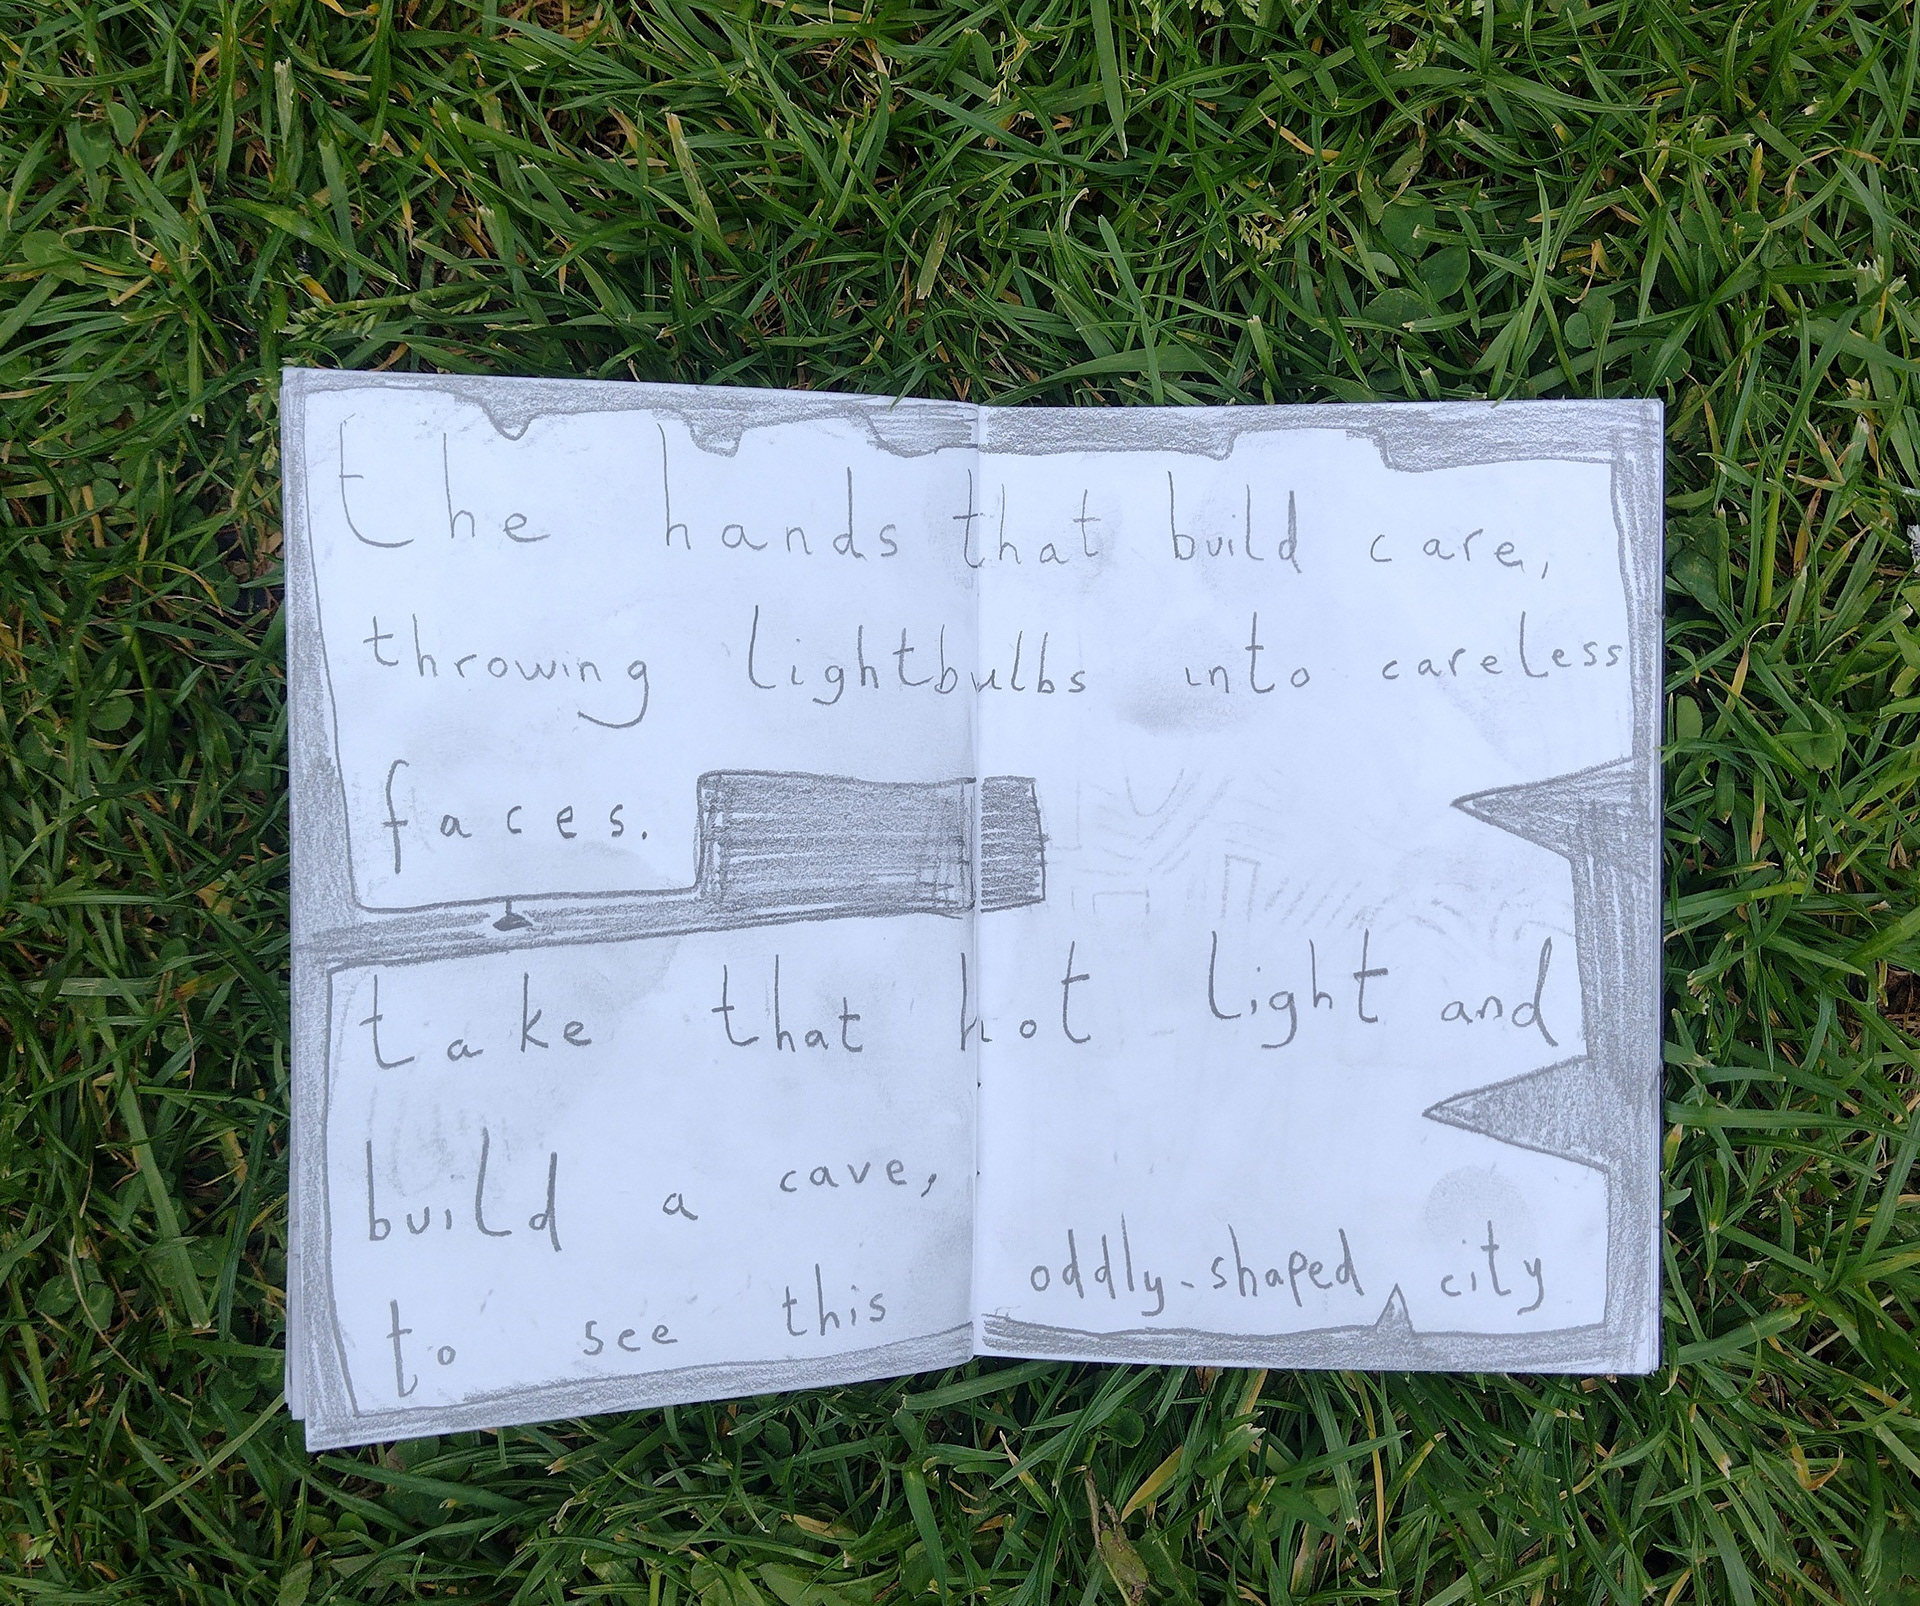 the hands that build care,
throwing lightbulbs into careless
faces.
take that hot light and
build a cave,
to see this oddly-shaped city